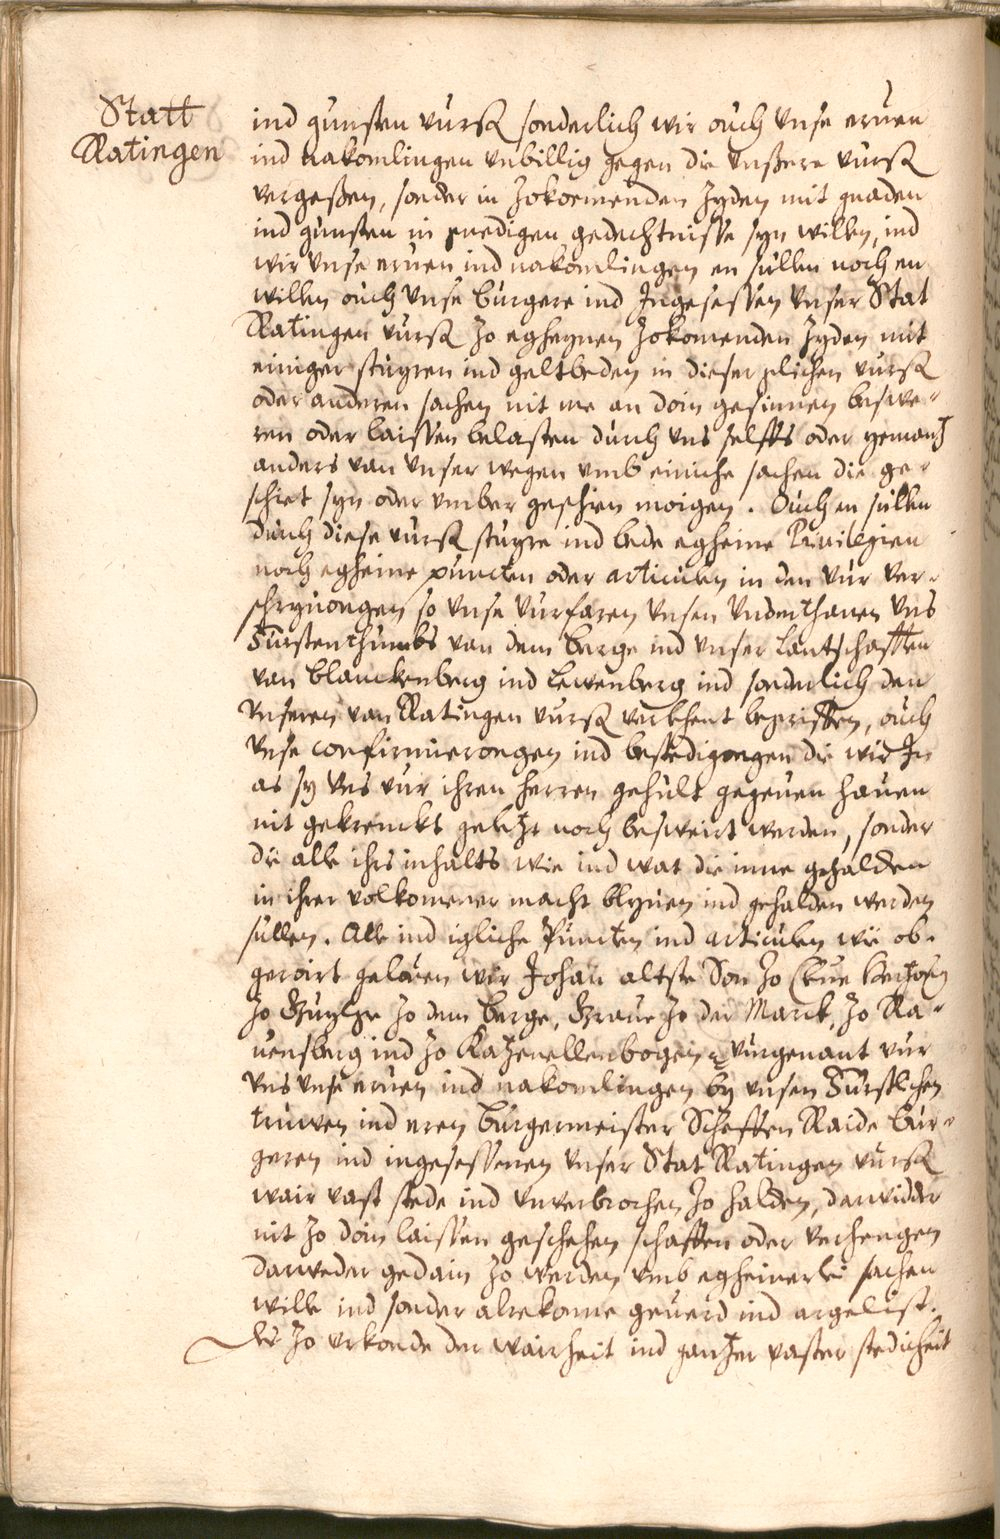 Statt
Ratingen
ind gunsten vursß sonderlich wir ouch vnse eruen
ind nakomlingen vnbillig gegen die vnßere vursß
vergeßen, sonder in zokomenden zyden mit gnaden
ind gunsten in gnedigen gedechtnisse syn willen, ind
wir vnse eruen ind nakomlingen en sullen noch en
willen ouch vnse burgere ind Ingesessen vnser Stat
Ratingen vursß zo egheynen zokomenden zyden mit
einiger stuyren ind geltbeden in dieser glichen vursß
oder anderen sachen nit me an doin gesinnen beswe-
ren oder laissen belasten durch vns selffs oder yemantz
anders van vnser wegen vmb einiche sachen die ge-
schiet syn oder vmber geschien moigen. Ouch en sullen
durch diese vursß stuyre ind bede egheine Priuilegien
noch egheine puncten oder articulen in den vur ver-
schryuongen so vnse vurfaren vnsen vnderthanen vns
Furstenthumbs van dem berge ind vnser Lantschafften
van blanckenberg ind Lewenberg ind sonderlich den
vnseren van Ratingen vursß verlehent begriffen, ouch
vnse confirmierongen ind bestedigongen die wir In
as sy vns vur ihren herren gehult gegeuen hauen
nit gekrenckt geletzt noch besweirt werden, sonder
die alle ihrs inhalts wie ind wat die inne gehalden
in ihrer volkomener macht blyuen ind gehalden werden
sullen. Alle ind igliche Puncten ind articulen wie ob-
geroirt gelouen wir Johan altste Son zo Cleue hertzoch
zo Guylge zo dem berge, Graue zo der Marck, zo Ra-
uensberg ind zo Katzenellenbogen vurgenant vur
vns vnse eruen ind nakomlingen by vnsen Furstlichen
truwen ind eren burgermeister Scheffen Raide bur-
geren ind ingesessenen vnser Stat Ratingen vursß
wair vast stede ind vnuerbrochen zo halden, darwidder
nit zo doin laissen geschehen schaffen oder verhengen
darweder gedain zo werden vmb egheinerlei sachen
wille ind sonder alrekonne geuerd ind argelist.
des zo vrkonde der wairheit ind gantzer vaster stedicheit